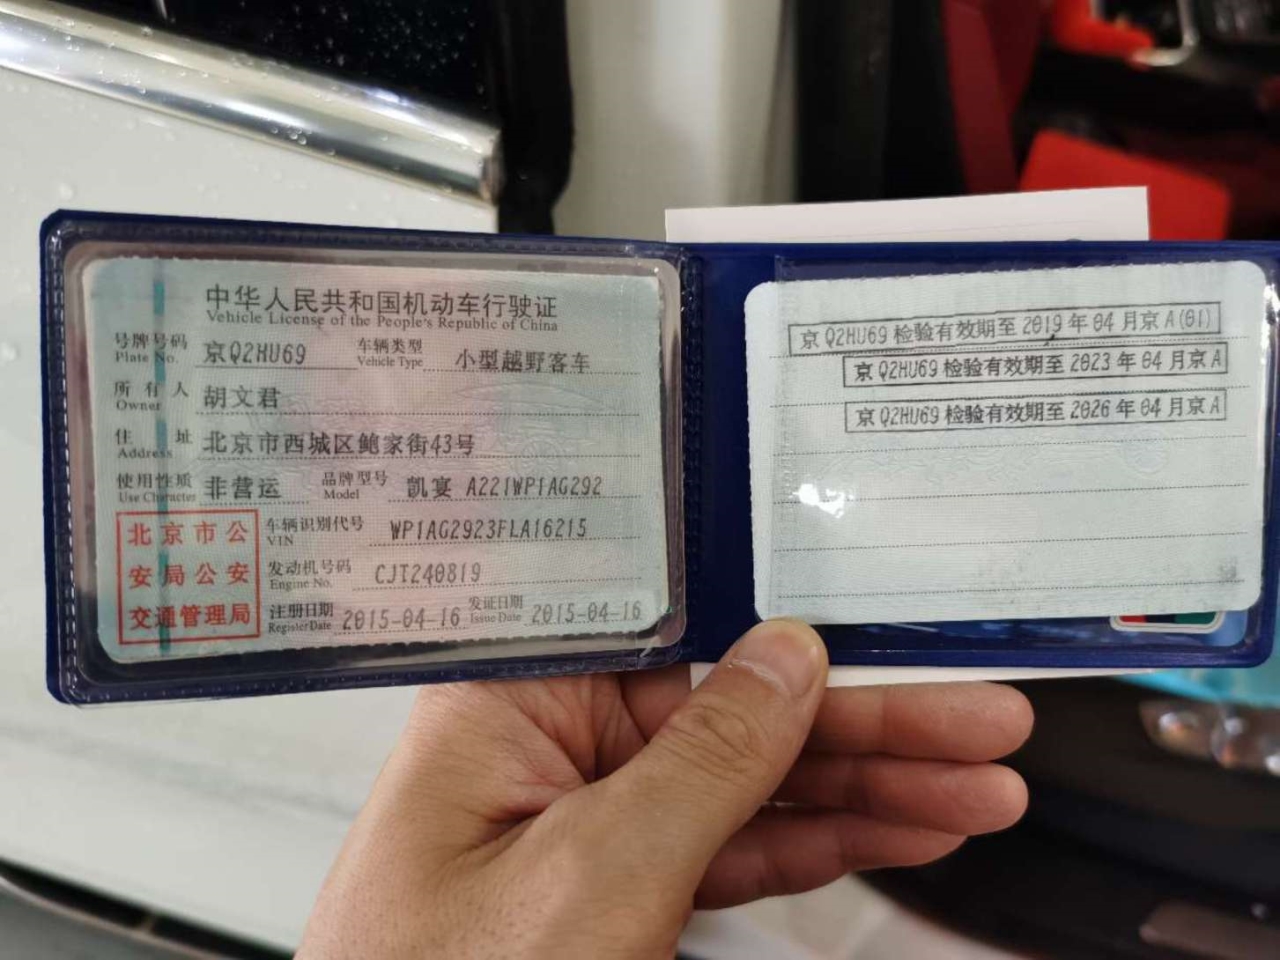 中华人民共和国机动车行驶证
Vehicle License of the People's Republic of China
号牌号码 京Q2HU69 车辆类型 小型越野客车
Plate No. Vehicle Type
所有人 胡文君
Owner
住址 北京市西城区鲍家街43号
Address
使用性质 非营运 品牌型号 凯宴 A221WP1AG292
Use Character Model
北京市公安局公安交通管理局
车辆识别代号 WP1AG2923FLA16215
VIN
发动机号码 CJT240819
Engine No.
注册日期 2015-04-16 发证日期 2015-04-16
Register Date Issue Date
京Q2HU69 检验有效期至 2019 年 04 月京 A(01)
京 Q2HU69 检验有效期至 2023 年 04 月京 A
京 Q2HU69 检验有效期至 2026 年 04 月京 A